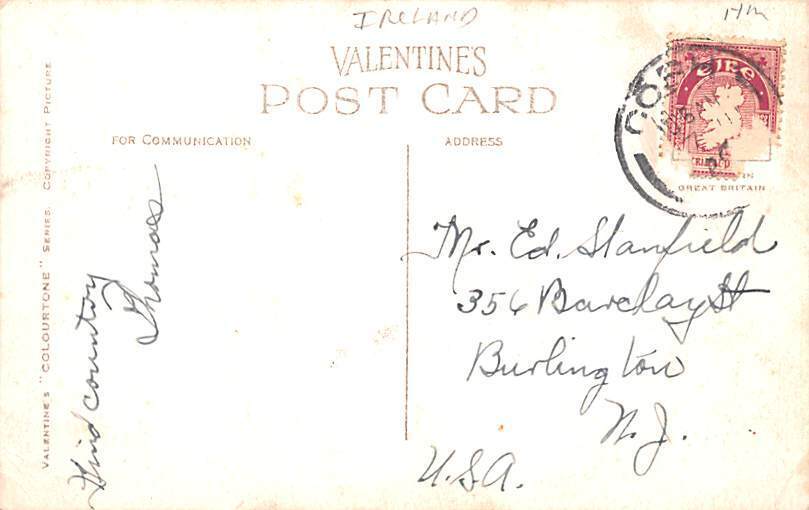 IRELAND
VALENTINE'S
POST CARD
FOR COMMUNICATION
ADDRESS
VALENTINE'S "COLOURTONE" SERIES. COPYRIGHT PICTURE
éIRe
IN
GREAT BRITAIN
Mr. Ed. Stanfield
356 Barclay St
Burlington
N. J.
U.S.A.
country
Thomas